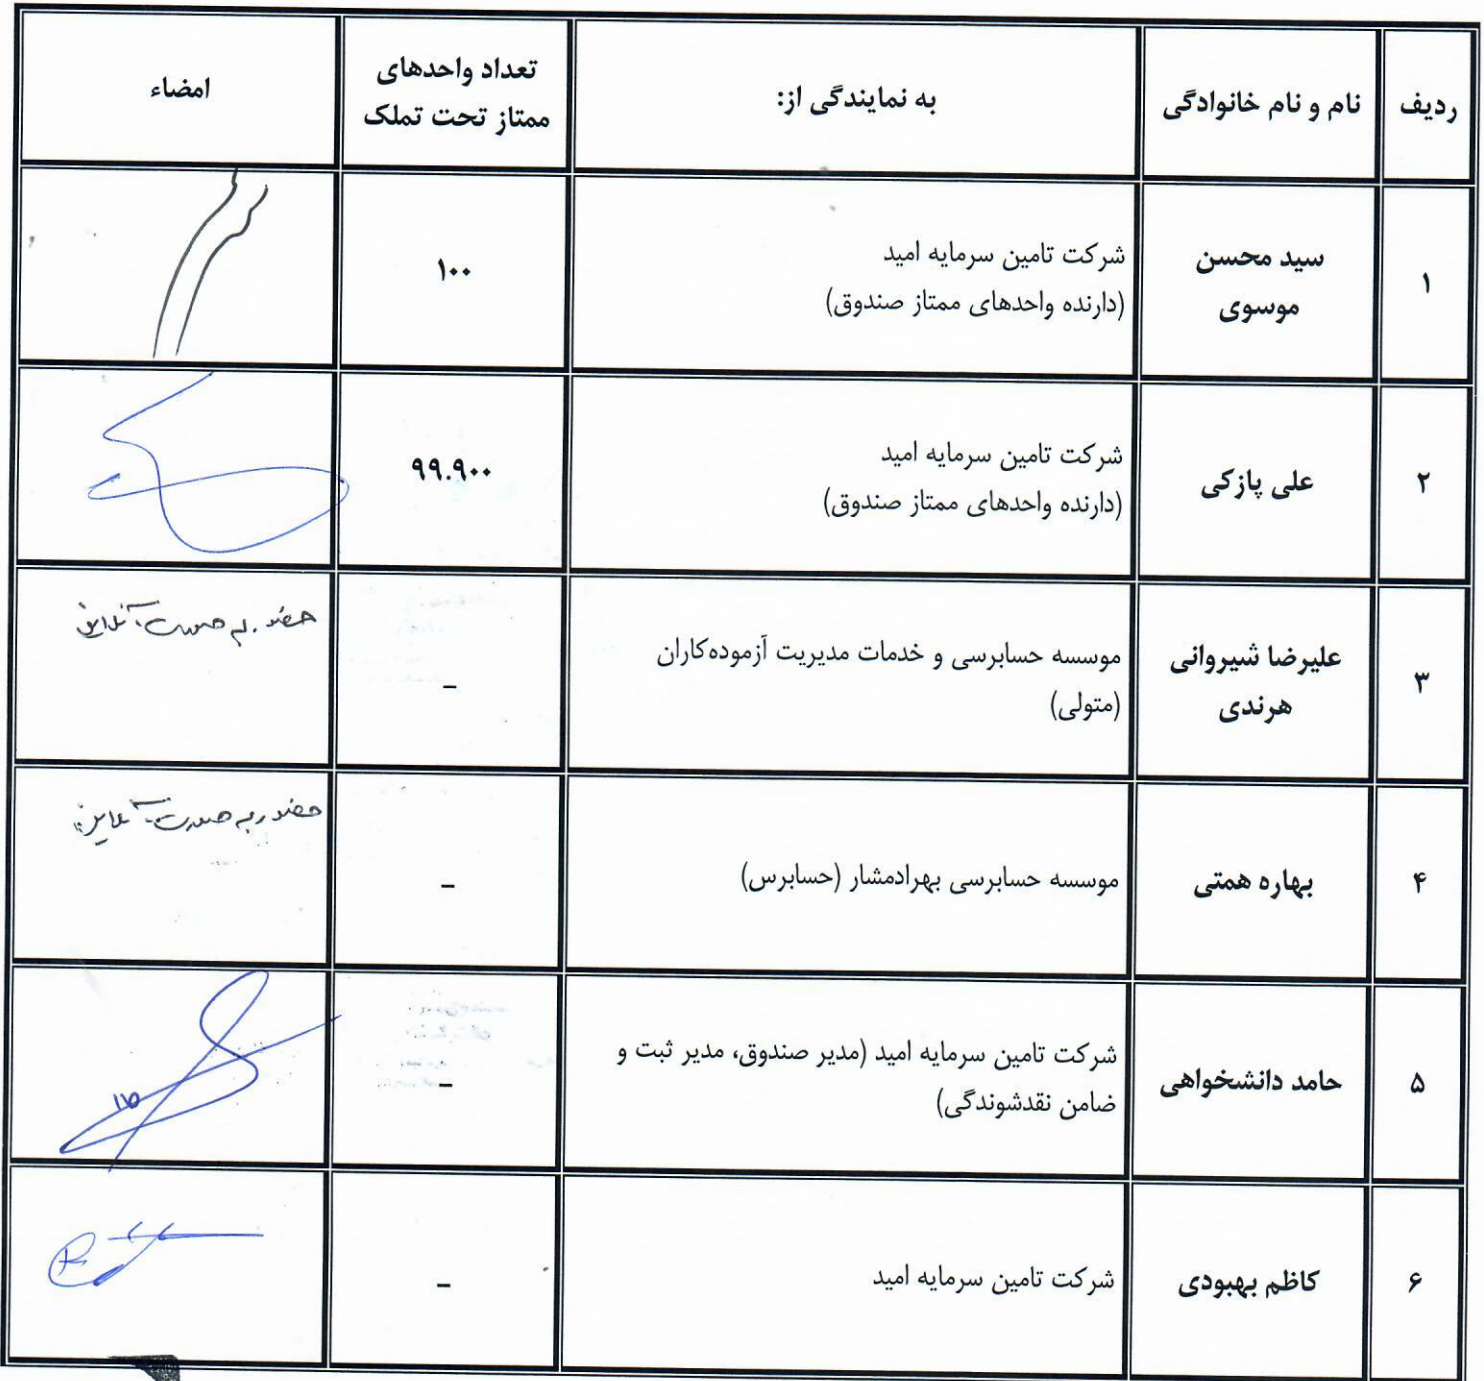 ردیف
نام و نام خانوادگی
به نمایندگی از:
تعداد واحدهای
ممتاز تحت تملک
امضاء
۱
سید محسن
موسوی
شرکت تامین سرمایه امید
(دارنده واحدهای ممتاز صندوق)
۱۰۰
۲
علی پازکی
شرکت تامین سرمایه امید
(دارنده واحدهای ممتاز صندوق)
۹۹.۹۰۰
۳
علیرضا شیروانی
هرندی
موسسه حسابرسی و خدمات مدیریت آزموده‌کاران
(متولی)
–
حضور به صورت آنلاین
۴
بهاره همتی
موسسه حسابرسی بهرادمشار (حسابرس)
–
حضور به صورت آنلاین
۵
حامد دانشخواهی
شرکت تامین سرمایه امید (مدیر صندوق، مدیر ثبت و
ضامن نقدشوندگی)
–
۶
کاظم بهبودی
شرکت تامین سرمایه امید
–